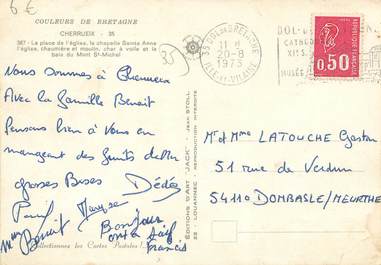 6 €
COULEURS DE BRETAGNE
CHERRUEIX - 35
367 - La place de l'église, la chapelle Sainte Anne
l'église, chaumière et moulin, char à voile et la
baie du Mont St-Michel
35
35 DOL-DE-BRETAGNE
11 H
20-8
1973
ILLE-ET-VILAINE
DOL-
CATHE
XIIS.
MUSÉE
0,50
Nous sommes à Cherrueix
Avec la famille Benoit
Pensons bien à vous en
mangeant des fruits de Mer
grosses Bises Dédé
Maryse
Mme Benoit
Bonjour
on a soif
Francis
Collectionnez les Cartes Postales
EDITIONS D'ART "JACK" - JEAN STOLL
22 LOUANNEC - REPRODUCTION INTERDITE
Mr et Mme LATOUCHE Gaston
51 rue de Verdun
54110 DOMBASLE/MEURTHE